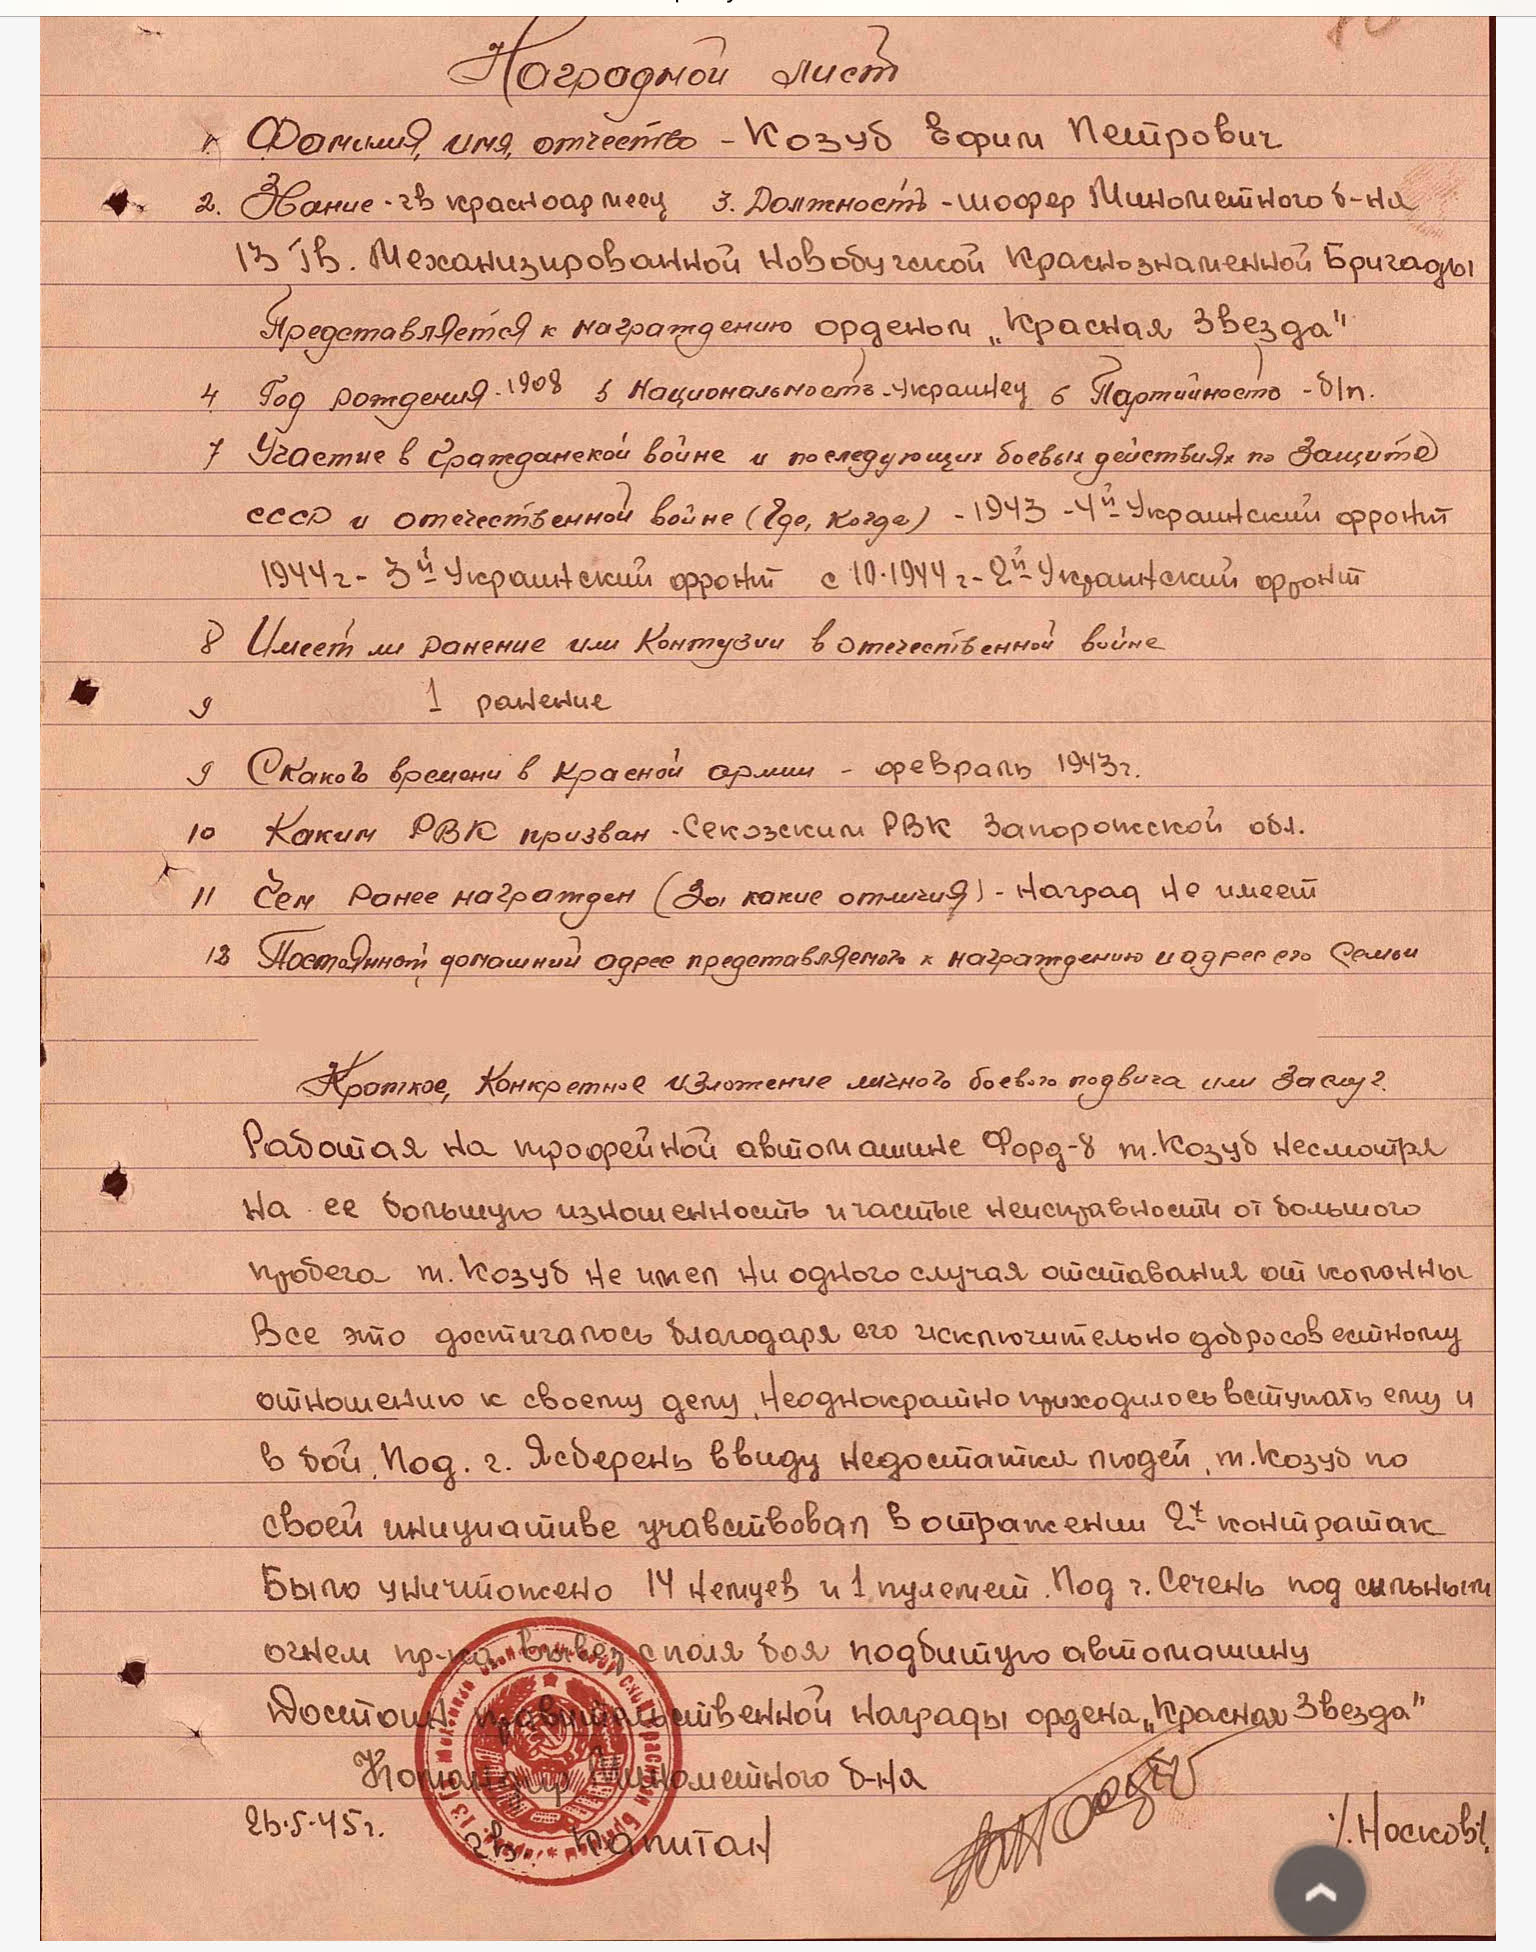 Наградной лист
1. Фамилия, имя, отчество - Козуб Ефим Петрович
2. Звание - гв красноармеец 3. Должность - шофер Минометного б-на
13 Гв. Механизированной Новобугской Краснознаменной Бригады
Представляется к награждению орденом „Красная Звезда"
4 Год рождения - 1908 5 Национальность - украинец 6 Партийность - б/п.
7 Участие в Гражданской войне и последующих боевых действиях по защите
СССР и отечественной войне (Где, когда) - 1943 - 4й Украинский фронт
1944 г - 3й Украинский фронт с 10.1944 г - 2й Украинский фронт
8 Имеет ли ранение или Контузии в отечественной войне
9 1 ранение
9 С какого времени в Красной армии - февраль 1943 г.
10 Каким РВК призван - РВК Запорожской обл.
11 Чем ранее награжден (За какие отличия) - Наград не имеет
12 домашний адрес представляемого к награждению и адрес его Семьи
Краткое, Конкретное изложение личного боевого подвига или Заслуг.
Работая на трофейной автомашине Форд-8 т. Козуб несмотря
на ее большую изношенность и частые неисправности от большого
пробега т. Козуб не имел ни одного случая отставания от колонны
Все это достигалось благодаря его исключительно добросовестному
отношению к своему делу, Неоднократно приходилось вступать ему и
в бой, Под. г. Ясберень ввиду недостатка людей, т. Козуб по
своей инициативе учавствовал в отражении 2х контратак
Было уничтожено 14 немцев и 1 пулемет. Под г. Сечень под сильным
огнем пр-ка вывез с поля боя подбитую автомашину
Достоин правительственной награды ордена „Красная Звезда"
Командир Минометного б-на
26.5.45 г. гв Капитан /. Носков/.